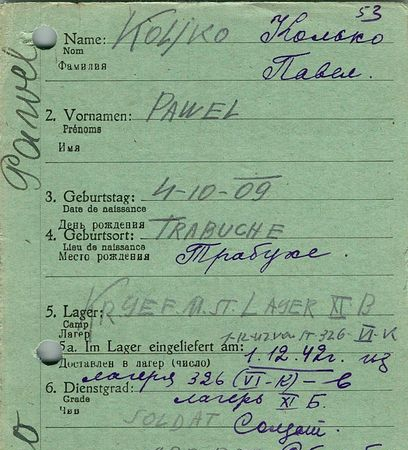 53
Name: KOLJKO Колько
Nom
Фамилия Павел.
2. Vornamen: PAWEL
Prénoms
Имя
3. Geburtstag: 4-10-09
Date de naissance
День рождения
4. Geburtsort: TRABUCHE
Lieu de naissance
Место рождения Трабухе.
5. Lager: KRGEF M. ST. LAGER XI B
Camp
Лагерь
1-12-42 von ST-326-VI-K
5a. Im Lager eingeliefert am: 1.12.42г. из
Доставлен в лагерь (число)
лагеря 326 (VI-K) – в
6. Dienstgrad: лагерь XI Б.
Grade
Чин SOLDAT Солдат.
Pawel